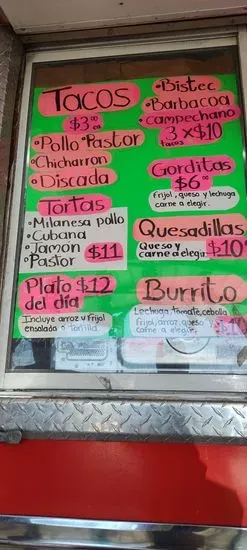 TACOS
$3.00
•Pollo •Pastor
•Chicharron
•Discada
•Bistec
•Barbacoa
•Campechano
3 x $10
tacos
Gorditas
$6.00
Frijol, queso y lechuga
carne a elegir.
Tortas
•Milanesa pollo
•Cubana
•Jamon
•Pastor
$11
Quesadillas
Queso y
carne a elegir
$10
Plato $12
del día
Incluye arroz y frijol
ensalada o Tortilla
Burrito
Lechuga, Tomate, cebolla
Frijol, arroz, queso y
carne a elegir